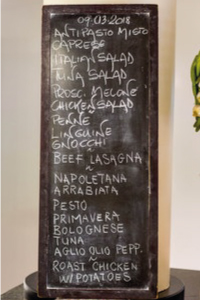 09.03.2018
ANTIPASTO MISTO
CAPRESE
ITALIAN SALAD
TUNA SALAD
PROSC. MELONE
CHICKEN SALAD
PENNE
LINGUINE
GNOCCHI
~
BEEF LASAGNA
~
NAPOLETANA
ARRABIATA
PESTO
PRIMAVERA
BOLOGNESE
TUNA
AGLIO OLIO PEPP.
~
ROAST CHICKEN
W/ POTATOES